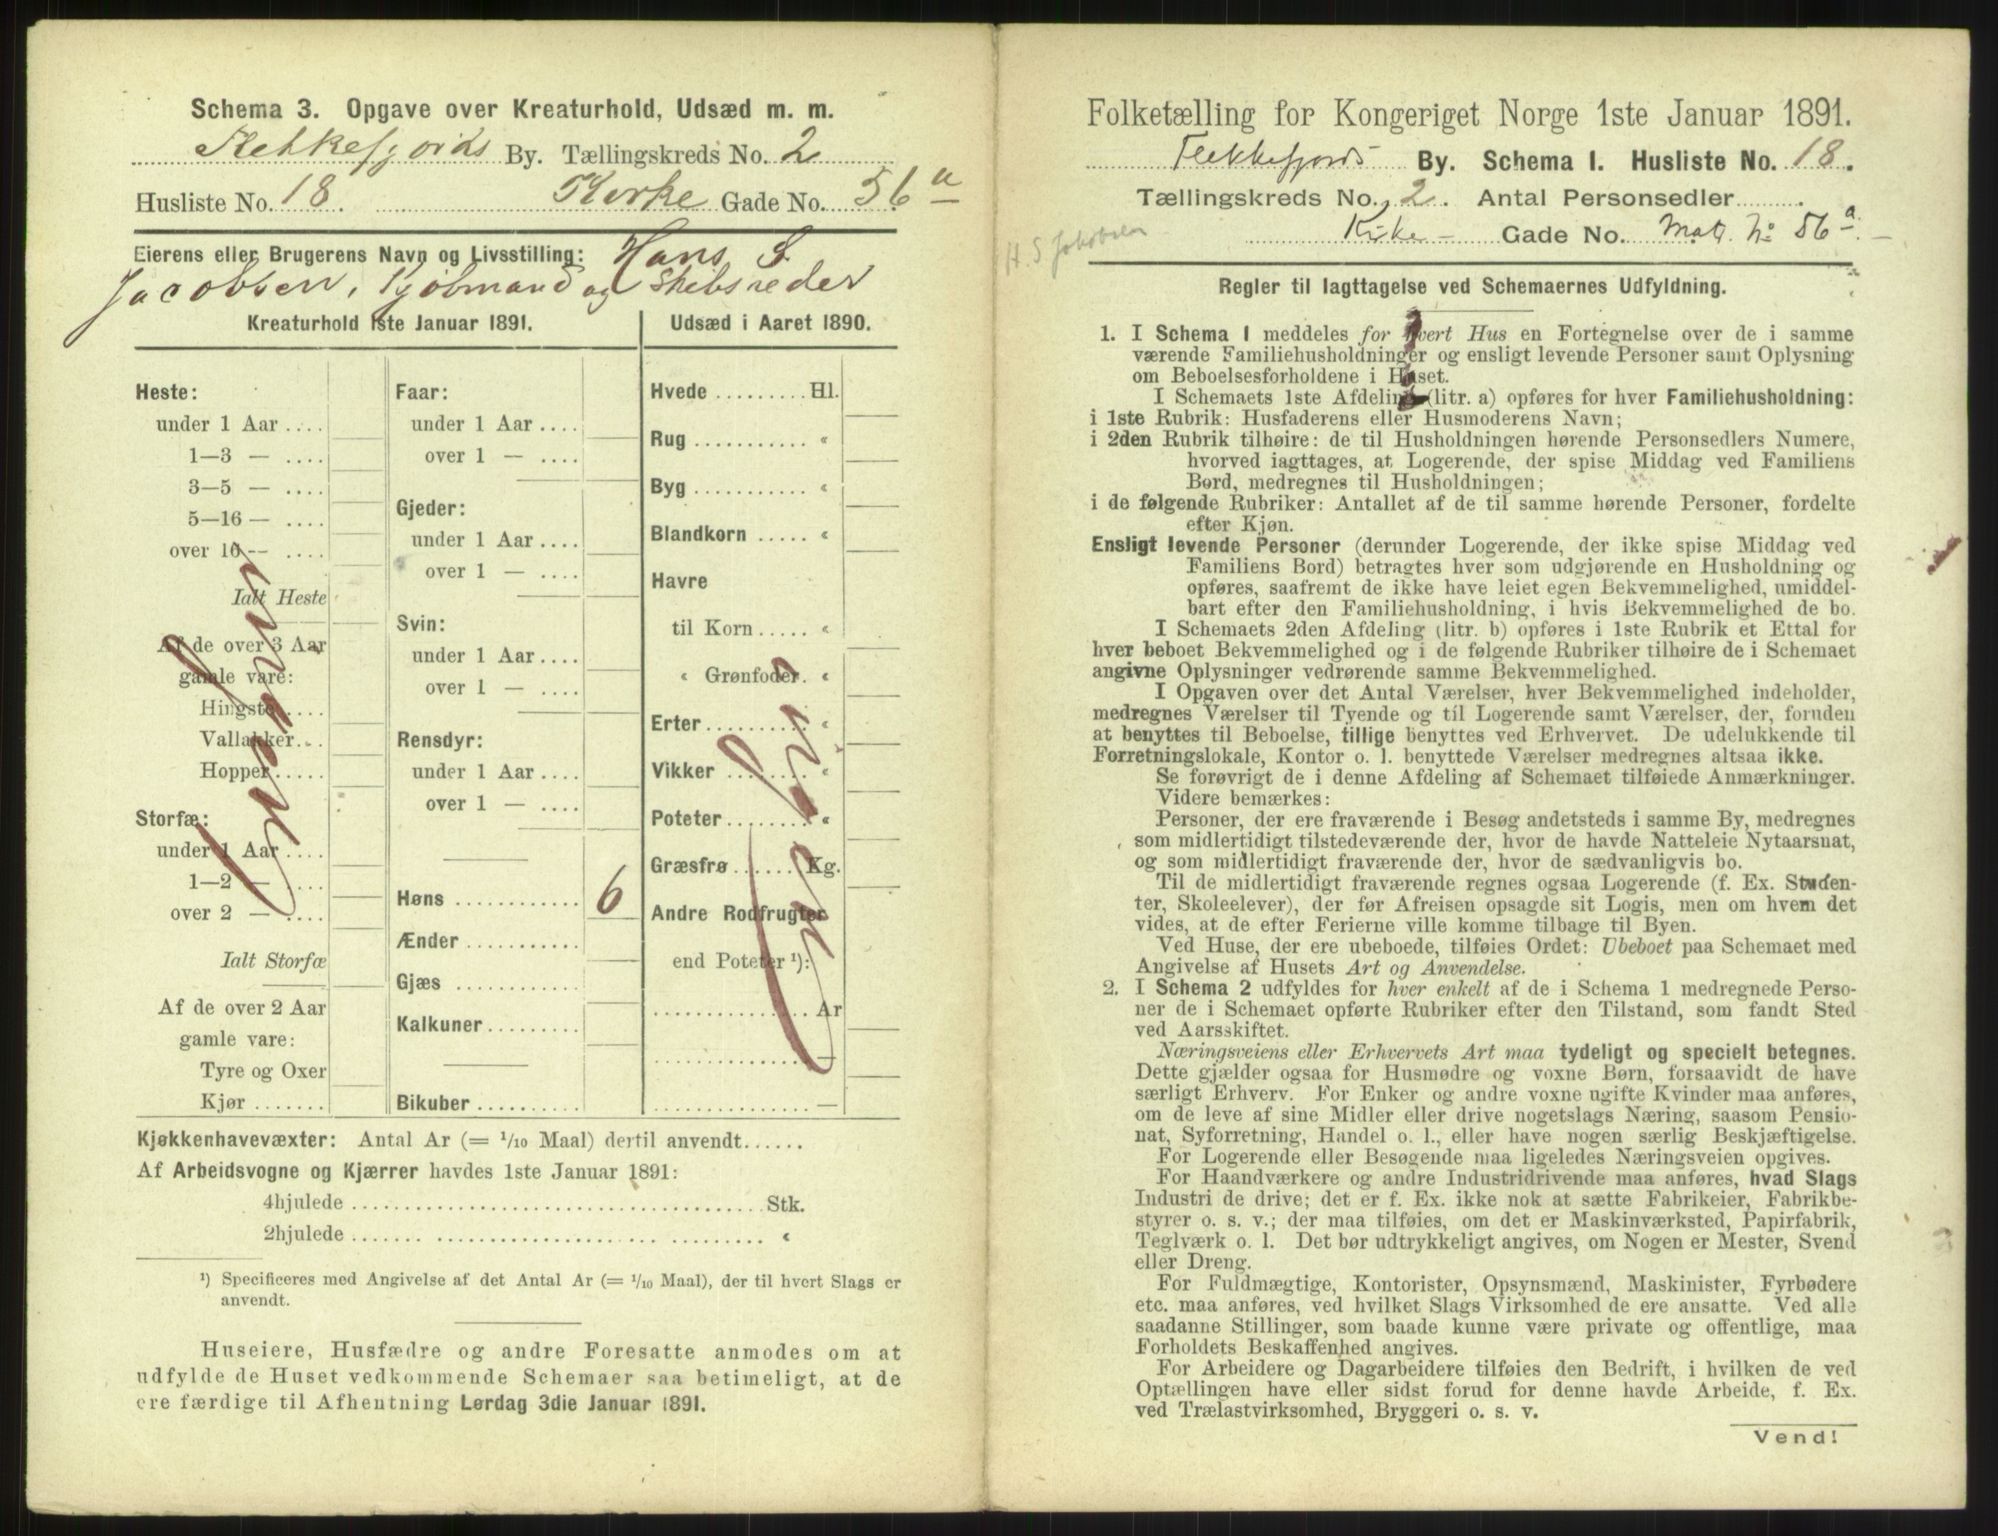 Schema 3. Opgave over Kreaturhold, Udsæd m. m.
Flekkefjords By. Tællingskreds No. 2
Husliste No. 18. Kirke Gade No. 56 a
Eierens eller Brugerens Navn og Livsstilling: Hans S.
Jacobsen, Kjøbmand og Skibsreder
Kreaturhold 1ste Januar 1891.
Heste:
under 1 Aar ....
1—3 — ....
3—5 — ....
5—16 — ....
over 16 — ....
Ialt Heste
Af de over 3 Aar
gamle vare:
Hingste ....
Vallakker...
Hopper.....
Storfæ:
under 1 Aar ....
1—2 — ....
over 2 — ....
Ialt Storfæ
Af de over 2 Aar
gamle vare:
Tyre og Oxer
Kjør .......
Faar:
under 1 Aar ....
over 1 — ....
Gjeder:
under 1 Aar ....
over 1 — ....
Svin:
under 1 Aar ....
over 1 — ....
Rensdyr:
under 1 Aar ....
over 1 — ....
Høns ........... 6
Ænder ..........
Gjæs ...........
Kalkuner ........
Bikuber .........
Udsæd i Aaret 1890.
Hvede ......... Hl.
Rug ........... «
Byg ........... «
Blandkorn ..... «
Havre
til Korn ..... «
« Grønfoder. «
Erter ......... «
Vikker ........ «
Poteter ........ «
Græsfrø ...... Kg.
Andre Rodfrugter
end Poteter ¹):
............... Ar
............... —
............... —
Kjøkkenhavevæxter: Antal Ar (= 1/10 Maal) dertil anvendt......
Af Arbeidsvogne og Kjærrer havdes 1ste Januar 1891:
4hjulede ........................................ Stk.
2hjulede ........................................ «
¹) Specificeres med Angivelse af det Antal Ar (= 1/10 Maal), der til hvert Slags er
anvendt.
Huseiere, Husfædre og andre Foresatte anmodes om at
udfylde de Huset vedkommende Schemaer saa betimeligt, at de
ere færdige til Afhentning Lørdag 3die Januar 1891.
Folketælling for Kongeriget Norge 1ste Januar 1891.
Flekkefjords By. Schema 1. Husliste No. 18.
Tællingskreds No. 2. Antal Personsedler .........
Kirke — Gade No. Matr. № 56 a. —
H. S Jakobsen
Regler til Iagttagelse ved Schemaernes Udfyldning.
1. I Schema 1 meddeles for hvert Hus en Fortegnelse over de i samme
værende Familiehusholdninger og ensligt levende Personer samt Oplysning
om Beboelsesforholdene i Huset.
I Schemaets 1ste Afdeling (litr. a) opføres for hver Familiehusholdning:
i 1ste Rubrik: Husfaderens eller Husmoderens Navn;
i 2den Rubrik tilhøire: de til Husholdningen hørende Personsedlers Numere,
hvorved iagttages, at Logerende, der spise Middag ved Familiens
Bord, medregnes til Husholdningen;
i de følgende Rubriker: Antallet af de til samme hørende Personer, fordelte
efter Kjøn.
Ensligt levende Personer (derunder Logerende, der ikke spise Middag ved
Familiens Bord) betragtes hver som udgjørende en Husholdning og
opføres, saafremt de ikke have leiet egen Bekvemmelighed, umiddel-
bart efter den Familiehusholdning, i hvis Bekvemmelighed de bo.
I Schemaets 2den Afdeling (litr. b) opføres i 1ste Rubrik et Ettal for
hver beboet Bekvemmelighed og i de følgende Rubriker tilhøire de i Schemaet
angivne Oplysninger vedrørende samme Bekvemmelighed.
I Opgaven over det Antal Værelser, hver Bekvemmelighed indeholder,
medregnes Værelser til Tyende og til Logerende samt Værelser, der, foruden
at benyttes til Beboelse, tillige benyttes ved Erhvervet. De udelukkende til
Forretningslokale, Kontor o. l. benyttede Værelser medregnes altsaa ikke.
Se forøvrigt de i denne Afdeling af Schemaet tilføiede Anmærkninger.
Videre bemærkes:
Personer, der ere fraværende i Besøg andetsteds i samme By, medregnes
som midlertidigt tilstedeværende der, hvor de havde Natteleie Nytaarsnat,
og som midlertidigt fraværende der, hvor de sædvanligvis bo.
Til de midlertidigt fraværende regnes ogsaa Logerende (f. Ex. Studen-
ter, Skoleelever), der før Afreisen opsagde sit Logis, men om hvem det
vides, at de efter Ferierne ville komme tilbage til Byen.
Ved Huse, der ere ubeboede, tilføies Ordet: Ubeboet paa Schemaet med
Angivelse af Husets Art og Anvendelse.
2. I Schema 2 udfyldes for hver enkelt af de i Schema 1 medregnede Perso-
ner de i Schemaet opførte Rubriker efter den Tilstand, som fandt Sted
ved Aarsskiftet.
Næringsveiens eller Erhvervets Art maa tydeligt og specielt betegnes.
Dette gjælder ogsaa for Husmødre og voxne Børn, forsaavidt de have
særligt Erhverv. For Enker og andre voxne ugifte Kvinder maa anføres,
om de leve af sine Midler eller drive nogetslags Næring, saasom Pensio-
nat, Syforretning, Handel o. l., eller have nogen særlig Beskjæftigelse.
For Logerende eller Besøgende maa ligeledes Næringsveien opgives.
For Haandværkere og andre Industridrivende maa anføres, hvad Slags
Industri de drive; det er f. Ex. ikke nok at sætte Fabrikeier, Fabrikbe-
styrer o. s. v.; der maa tilføies, om det er Maskinværksted, Papirfabrik,
Teglværk o. l. Det bør udtrykkeligt angives, om Nogen er Mester, Svend
eller Dreng.
For Fuldmægtige, Kontorister, Opsynsmænd, Maskinister, Fyrbødere
etc. maa anføres, ved hvilket Slags Virksomhed de ere ansatte. Ved alle
saadanne Stillinger, som baade kunne være private og offentlige, maa
Forholdets Beskaffenhed angives.
For Arbeidere og Dagarbeidere tilføies den Bedrift, i hvilken de ved
Optællingen have eller sidst forud for denne havde Arbeide, f. Ex.
ved Trælastvirksomhed, Bryggeri o. s. v.
Vend!